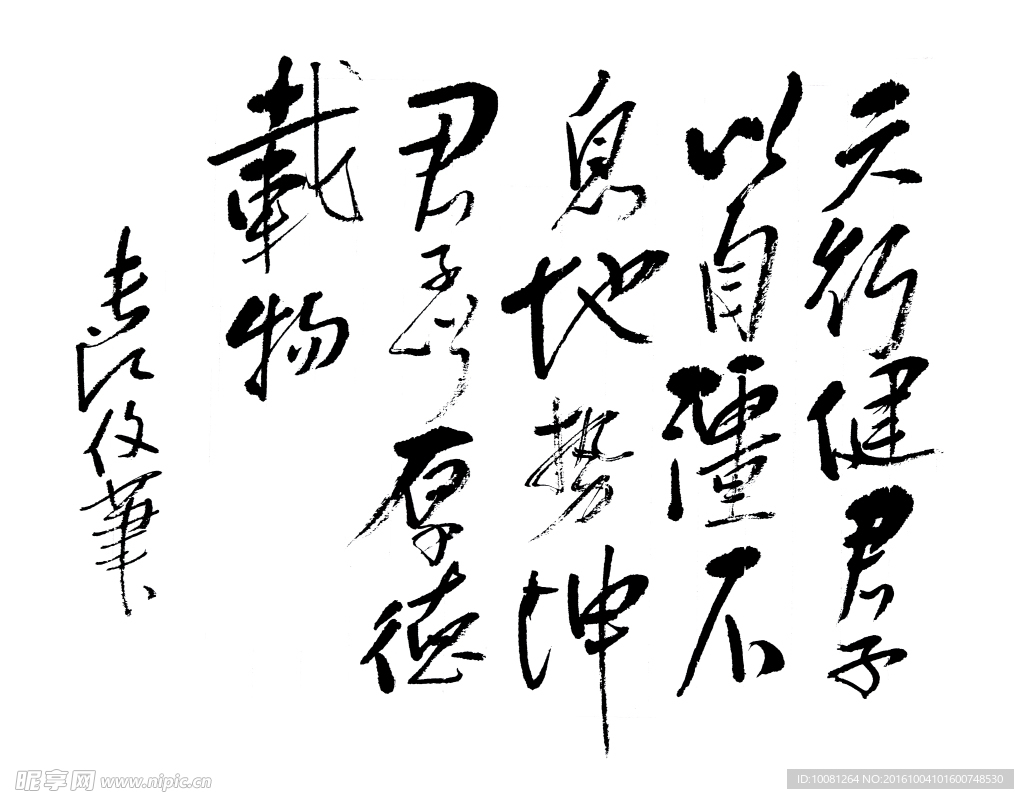 天行健君子
以自彊不
息地势坤
君子以厚德
載物
筆
昵享网 www.nipic.cn
ID:10081264 NO:20161004101600748530